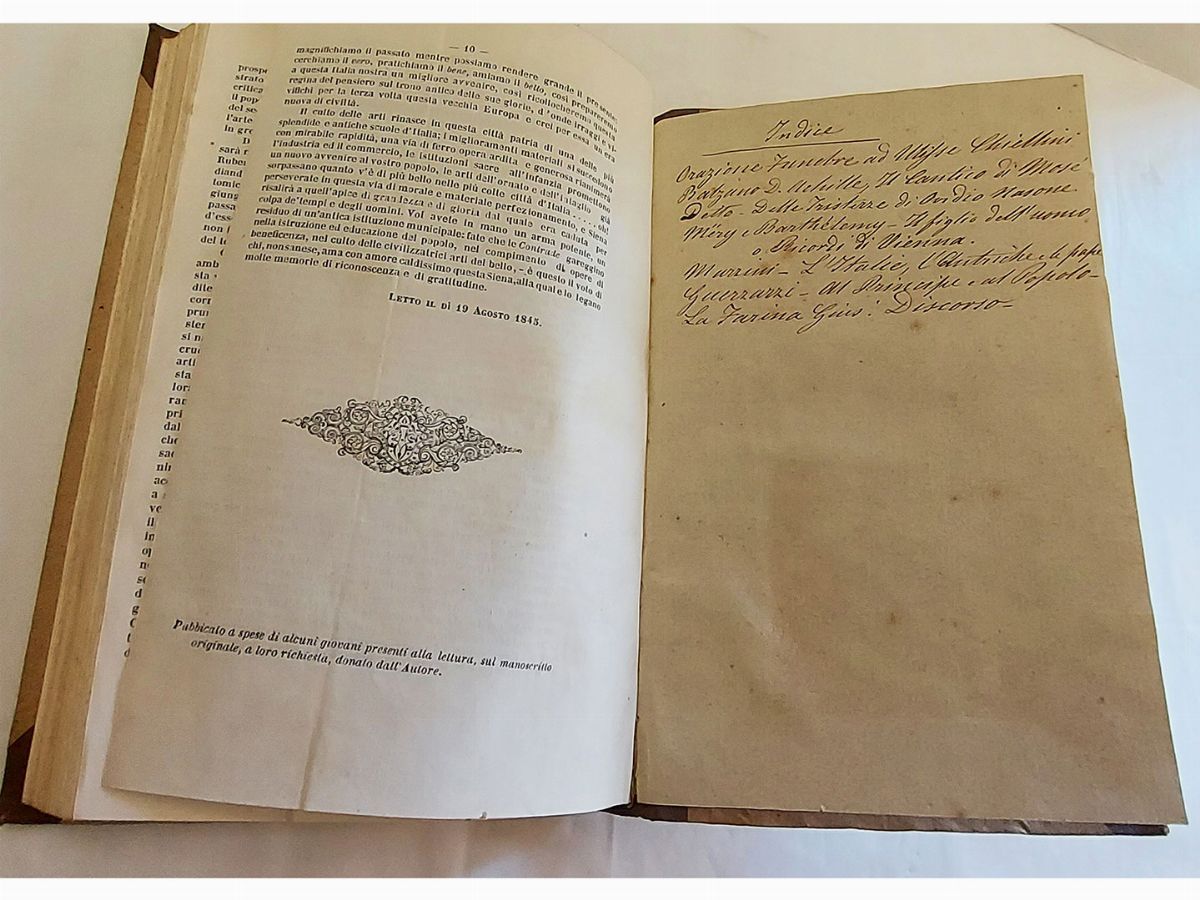 — 10 —
magnifichiamo il passato mentre possiamo rendere grande il presente:
cerchiamo il vero, pratichiamo il bene, amiamo il bello, così prepareremo
a questa Italia nostra un migliore avvenire, così ricollocheremo questa
regina del pensiero sul trono antico delle sue glorie, d'onde irraggi e vi-
vifichi per la terza volta questa vecchia Europa e crei per essa un era
nuova di civiltà.
Il culto delle arti rinasce in questa città patria di una delle più
splendide e antiche scuole d'Italia; i miglioramenti materiali si succedono
con mirabile rapidità, una via di ferro opera ardita e generosa rianimerà
l'industria ed il commercio, le istituzioni sacre all'infanzia promettono
un nuovo avvenire al vostro popolo, le arti dell'ornato e dell'intaglio già
sorpassano quanto v'è di più bello nelle più colte città d'Italia..... oh!
perseverate in questa via di morale e materiale perfezionamento, e Siena
risalirà a quell'apice di grandezza e di gloria dal quale era caduta per
colpa de'tempi e degli uomini. Voi avele in mano un arma potente, un
residuo di un'antica istituzione municipale: fate che le Contrade gareggino
nella istruzione ed educazione del popolo, nel compimento di opere di
beneficenza, nel culto delle civilizzatrici arti del bello, - è questo il voto di
chi, non sanese, ama con amore caldissimo questa Siena, alla quale lo legano
molte memorie di riconoscenza e di gratitudine.
LETTO IL DÌ 19 AGOSTO 1845.
Pubblicato a spese di alcuni giovani presenti alla lettura, sul manoscritto
originale, a loro richiesta, donato dall'Autore.
Indice
Orazione Funebre ad Ulisse Chiellini
Balzano D. Achille, Il Cantico di Mosé
Detto - Delle Tristezze di Ovidio Nasone
Méry e Barthélemy - Il figlio dell'uomo,
o Ricordi di Vienna.
Mazzini - L'Italie, l'Autriche et le pape
Guerrazzi - Al Principe e al Popolo -
La Farina Gius: Discorso -